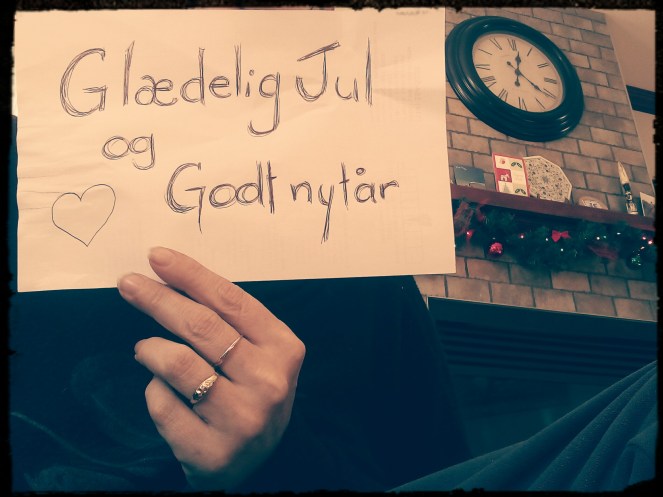 Glædelig Jul
og
Godt nytår